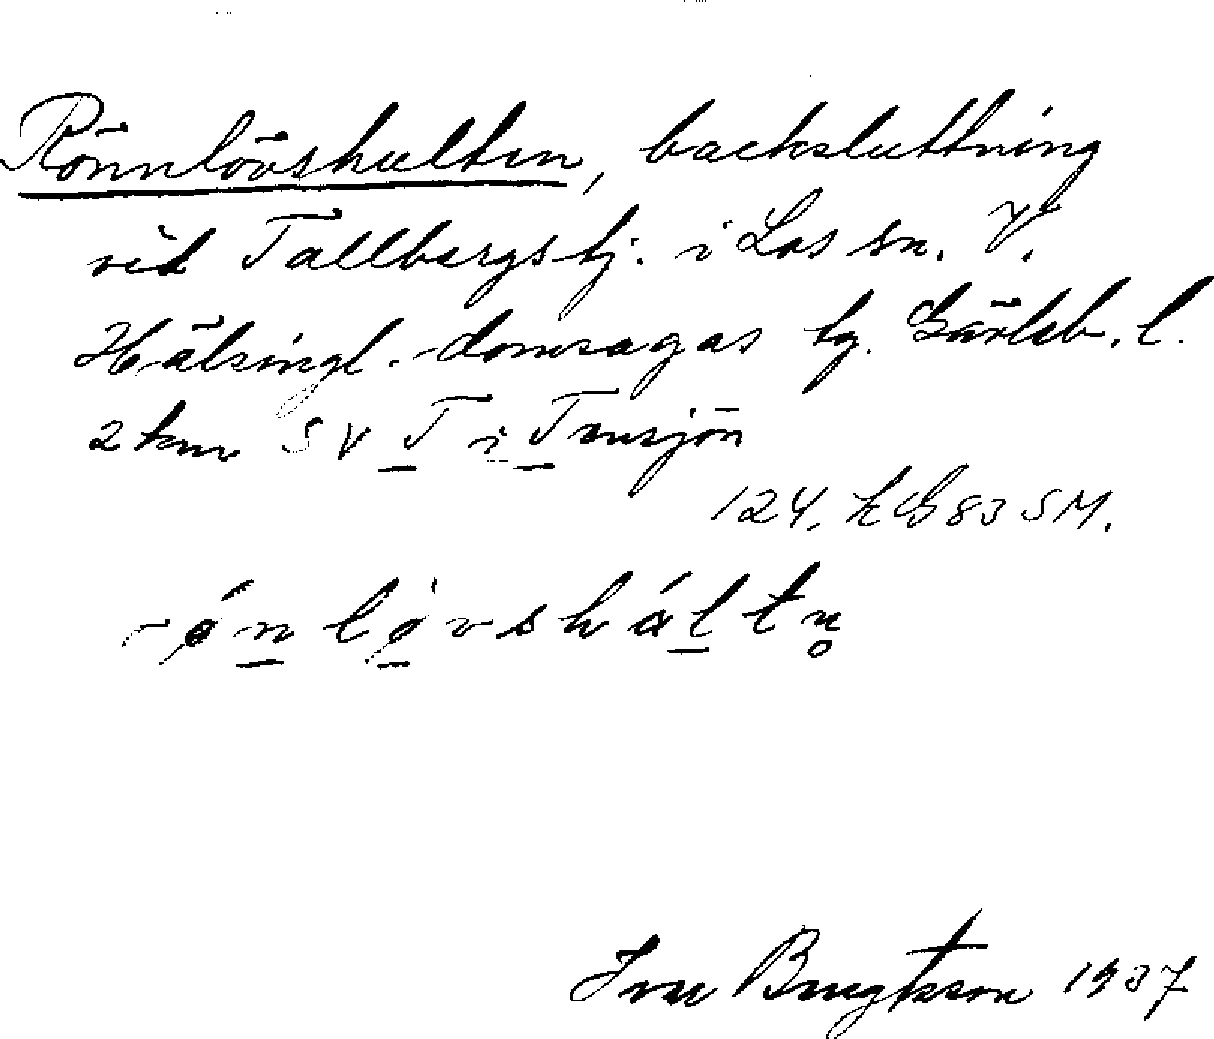 Rönnlövshulten, backsluttning
vid Tallbergstj. i Los sn. V.
Hälsingl. domsagas tg. Gävleb. l.
2 km SV T i Tensjön
124. SM.
rǿn lǿvshált n̥
Bengtsson 1937